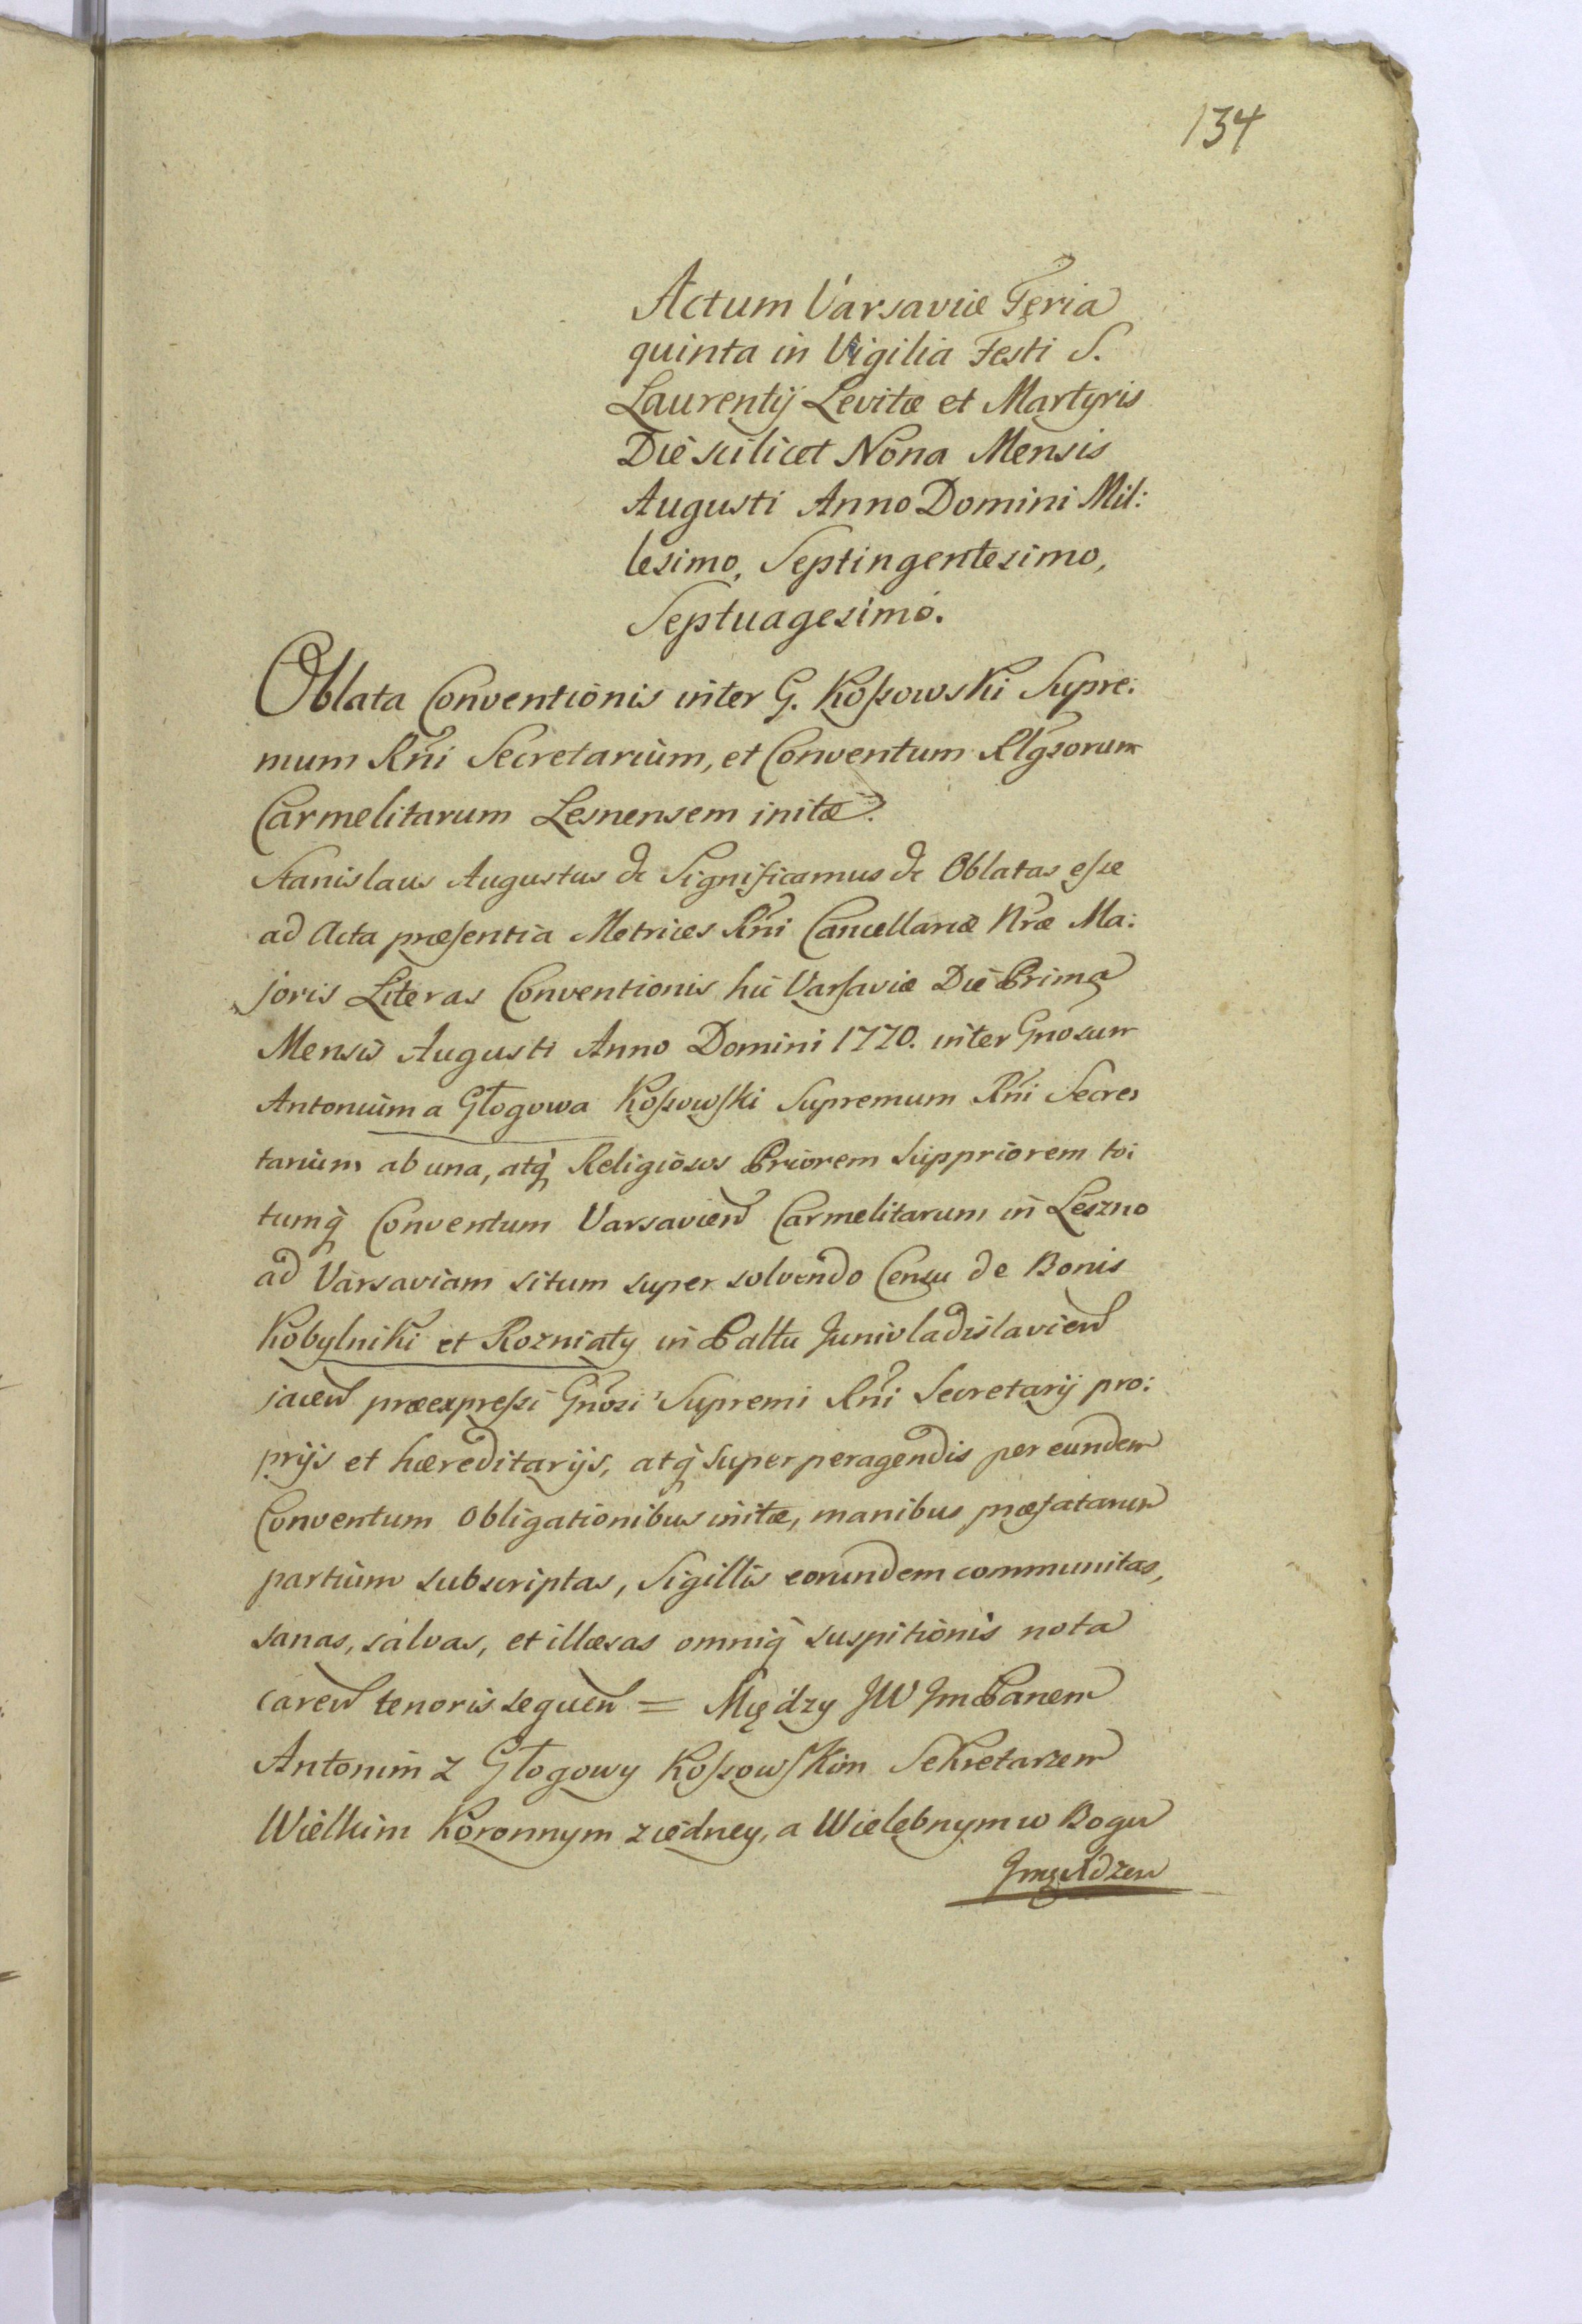 134
Actum Varsaviæ Feria
quinta in Vigilia Festi S.
Laurentij Levitæ et Martyris
Die scilicet Nona Mensis
Augusti Anno Domini Mil:
lesimo, Septingentesimo,
Septuagesimo.
Oblata Conventionis inter G. Koſsowski Supre:
mum Rñi Secretarium, et Conventum Rlgsorum
Carmelitarum Lesnensem initæ.
Stanislaus Augustus &c Significamus &c Oblatas eſse
ad Acta præſentia Metrices Rñi Cancellariæ Nræ Ma:
joris Literas Conventionis hic Varſaviæ Die Prima
Mensis Augusti Anno Domini 1770. inter Gnosum
Antonium a Głogowa Koſsowſki Supremum Rñi Secre:
tarium ab una, atq̃ Religiosos Priorem Suppriorem to:
tumq̃ Conventum Varsavien Carmelitarum in Leszno
ad Varsaviam situm super solvendo Censu de Bonis
Kobylniki et Rozniaty in Palttu Junivladislavien
jacen præexpreſsi Gnosi Supremi Rñi Secretarij pro:
prijs et hæreditarijs, atq̃ super peragendis per eundem
Conventum Obligationibus initæ, manibus præfatarum
partium subscriptas, Sigillis eorundem communitas,
sanas, salvas, et illæsas omniq̃ suspitionis nota
caren tenoris sequen = Między JW JmPanem
Antonim z Głogowy Koſsowſkim Sekretarzem
Wielkim Koronnym z iedney, a Wielebnym w Bogu